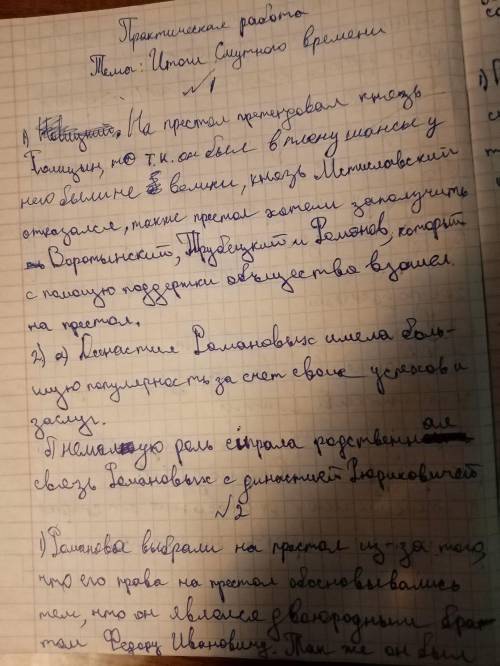 Практическая работа
Тема: Итоги Смутного времени
№1
1) На престол претендовал князь
Голицын, но т.к. он был в плену шансы у
него были не велики, князь Мстиславский
отказался, также престол хотели заполучить
Воротынский, Трубецкий и Романов, который
с помощю поддержки общества взошел
на престол.
2) а) Династия Романовых имела боль-
шую популярность за счет своих успехов и
заслуг.
б) немалую роль сыграла родственная
связь Романовых с династией Рюриковичей
№2
1) Романова выбрали на престол из-за того,
что его права на престол обосновывались
тем, что он являлся двоюродным бра-
том Федору Ивановичу. Так же он был